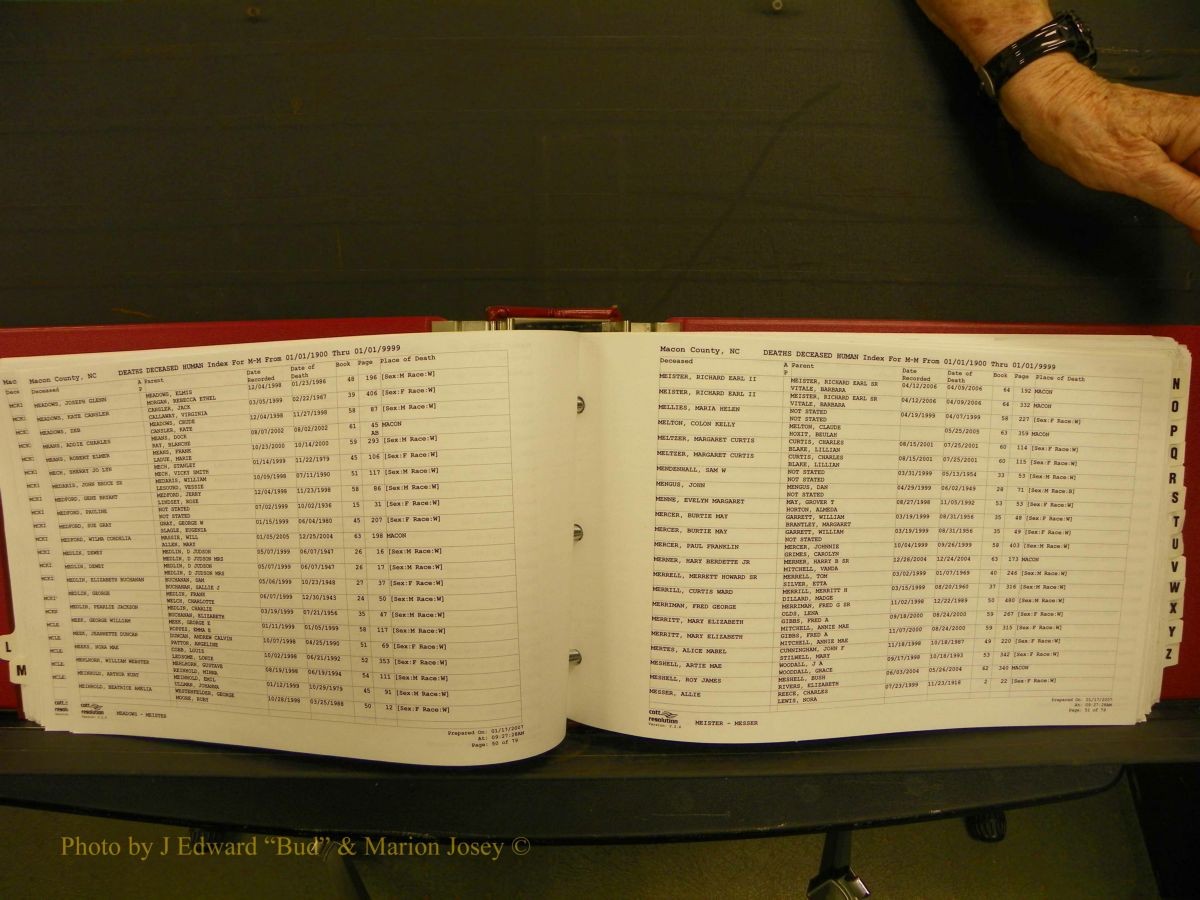 Macon County, NC DEATHS DECEASED HUMAN Index For M-M From 01/01/1900 Thru 01/01/9999
Deceased A Parent Date Recorded Date of Death Book Page Place of Death
MEADOWS, JOSEPH GLENN MEADOWS, ELMIS 12/04/1998 01/23/1986 48 196 [Sex:M Race:W]
MORGAN, REBECCA ETHEL
MEADOWS, KATE CANSLER CANSLER, JACK 03/05/1999 02/22/1987 39 406 [Sex:F Race:W]
CALLAWAY, VIRGINIA
MEADOWS, ZEB MEADOWS, CHUDE 12/04/1998 11/27/1998 58 87 [Sex:M Race:W]
CANSLER, KATE
MEANS, ADDIE CHARLES MEANS, DOCK 08/07/2002 08/02/2002 61 45 MACON
RAY, BLANCHE AB
MEANS, ROBERT ELMER MEANS, FRANK 10/23/2000 10/14/2000 59 293 [Sex:M Race:W]
LADUE, MARIE
MECH, STANLEY 01/14/1999 11/22/1979 45 106 [Sex:F Race:W]
MECH, VICKY SMITH
MEDARIS, JOHN BRUCE SR MEDARIS, WILLIAM 10/29/1998 07/11/1990 51 117 [Sex:M Race:W]
LESOURD, VESSIE
MEDFORD, GENE BRYANT MEDFORD, JERRY 12/04/1998 11/23/1998 58 86 [Sex:M Race:W]
LINDSEY, ROSE
MEDFORD, PAULINE NOT STATED 07/02/1999 10/02/1936 15 31 [Sex:F Race:W]
NOT STATED
MEDFORD, SUE GRAY GRAY, GEORGE W 01/15/1999 06/04/1980 45 207 [Sex:F Race:W]
SLAGLE, EUGENIA
MEDFORD, WILMA CORDELIA MASSIE, WILL 01/05/2005 12/25/2004 63 198 MACON
ALLEN, MARY
MEDLIN, DEWEY MEDLIN, D JUDSON 05/07/1999 06/07/1947 26 16 [Sex:M Race:W]
MEDLIN, D JUDSON MRS
MEDLIN, DEWEY MEDLIN, D JUDSON 05/07/1999 06/07/1947 26 17 [Sex:M Race:W]
MEDLIN, D JUDSON MRS
MEDLIN, ELIZABETH BUCHANAN BUCHANAN, SAM 05/06/1999 10/23/1948 27 37 [Sex:F Race:W]
BUCHANAN, SALLIE J
MEDLIN, GEORGE MEDLIN, FRANK 06/07/1999 12/30/1943 24 50 [Sex:M Race:W]
WELCH, CHARLOTTE
MEDLIN, PEARLIE JACKSON MEDLIN, CHARLIE 03/19/1999 07/21/1956 35 47 [Sex:M Race:W]
BUCHANAN, ELIZABETH
MEEK, GEORGE WILLIAM MEEK, GEORGE E 01/11/1999 01/05/1999 58 117 [Sex:M Race:W]
HOPPES, EMMA E
MEEK, JEANNETTE DUNCAN DUNCAN, ANDREW CALVIN 10/07/1998 04/25/1990 51 69 [Sex:F Race:W]
PATTON, ANGELINE
MEEKS, NORA MAE COBB, LOUIE 10/02/1998 06/21/1992 52 353 [Sex:F Race:W]
LEDSOME, LOUIE
MEHLHORN, WILLIAM WEBSTER MEHLHORN, GUSTAVE 08/19/1998 06/19/1994 54 111 [Sex:M Race:W]
REINHOLD, MINNA
MEINHOLD, ARTHUR KURT MEINHOLD, EMIL 01/12/1999 10/29/1979 45 91 [Sex:M Race:W]
ULLMAN, JOHANNA
MEINHOLD, BEATRICE AMELIA WESTENFELDER, GEORGE 10/28/1998 03/25/1988 50 12 [Sex:F Race:W]
MOORE, RUBY
MEADOWS - MEISTER
Prepared On: 01/17/2007
At: 09:27:28AM
Page: 50 of 79
L
M
Macon County, NC DEATHS DECEASED HUMAN Index For M-M From 01/01/1900 Thru 01/01/9999
Deceased A Parent Date Recorded Date of Death Book Page Place of Death
MEISTER, RICHARD EARL II MEISTER, RICHARD EARL SR 04/12/2006 04/09/2006 64 192 MACON
VITALE, BARBARA
MEISTER, RICHARD EARL II MEISTER, RICHARD EARL SR 04/12/2006 04/09/2006 64 332 MACON
VITALE, BARBARA
MELLIES, MARIA HELEN NOT STATED 04/19/1999 04/07/1999 58 227 [Sex:F Race:W]
NOT STATED
MELTON, COLON KELLY MELTON, CLAUDE 05/25/2005 63 359 MACON
HOXIT, BEULAH
MELTZER, MARGARET CURTIS CURTIS, CHARLES 08/15/2001 07/25/2001 60 114 [Sex:F Race:W]
BLAKE, LILLIAN
MELTZER, MARGARET CURTIS CURTIS, CHARLES 08/15/2001 07/25/2001 60 115 [Sex:F Race:W]
BLAKE, LILLIAN
MENDENHALL, SAM W NOT STATED 03/31/1999 05/13/1954 33 53 [Sex:M Race:W]
NOT STATED
MENGUS, JOHN MENGUS, DAN 04/29/1999 06/02/1949 28 71 [Sex:M Race:B]
NOT STATED
MENNE, EVELYN MARGARET MAY, GROVER T 08/27/1998 11/05/1992 53 53 [Sex:F Race:W]
HORTON, ALMEDA
MERCER, BURTIE MAY GARRETT, WILLIAM 03/19/1999 08/31/1956 35 48 [Sex:F Race:W]
BRANTLEY, MARGARET
MERCER, BURTIE MAY GARRETT, WILLIAM 03/19/1999 08/31/1956 35 49 [Sex:F Race:W]
NOT STATED
MERCER, PAUL FRANKLIN MERCER, JOHNNIE 10/04/1999 09/26/1999 58 403 [Sex:M Race:W]
GRIMES, CAROLYN
MERNER, HARY BERDETTE JR MERNER, HARRY B SR 12/28/2004 12/24/2004 63 173 MACON
MITCHELL, VANDA
MERRELL, MERRETT HOWARD SR MERRELL, TOM 03/02/1999 01/07/1969 40 246 [Sex:M Race:W]
SILVER, ETTA
MERRILL, CURTIS WARD MERRILL, MERRITT H 03/15/1999 08/20/1960 37 316 [Sex:M Race:W]
DILLARD, MADGE
MERRIMAN, FRED GEORGE MERRIMAN, FRED G SR 11/02/1998 12/22/1989 50 480 [Sex:M Race:W]
OLDS, LENA
MERRITT, MARY ELIZABETH GIBBS, FRED A 09/18/2000 08/24/2000 59 267 [Sex:F Race:W]
MITCHELL, ANNIE MAE
MERRITT, MARY ELIZABETH GIBBS, FRED A 11/07/2000 08/24/2000 59 315 [Sex:F Race:W]
MITCHELL, ANNIE MAE
MERTES, ALICE MABEL CUNNINGHAM, JOHN F 11/18/1998 10/18/1987 49 220 [Sex:F Race:W]
STILWELL, MARY
MESHELL, ARTIE MAE WOODALL, J A 09/17/1998 10/18/1993 53 342 [Sex:F Race:W]
WOODDALL, GRACE
MESHELL, ROY JAMES MESHELL, BUSH 06/03/2004 05/26/2004 62 340 MACON
RIVERS, ELIZABETH
MESSER, ALLIE REECE, CHARLES 07/23/1999 11/23/1918 2 22 [Sex:F Race:W]
LEWIS, NORA
cott resolution
MEISTER - MESSER
Prepared On: 01/17/2007
At: 09:27:28AM
Page: 51 of 79
N
O
P
Q
R
S
T
U
V
W
X
Y
Z
Photo by J Edward “Bud” & Marion Josey ©